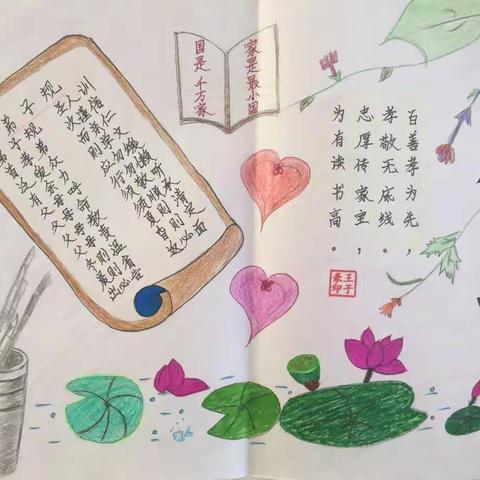 弟子规
弟子规 圣人训
首孝弟 次谨信
泛爱众 而亲仁
有余力 则学文
父母呼 应勿缓
父母命 行勿懒
父母教 须敬听
父母责 须顺承
冬则温 夏则清
晨则省 昏则定
出必告 返必面
国是千万家
家是最小国
百善孝为先，
孝敬无底线，
忠厚传家宝，
为有读书高。
王子